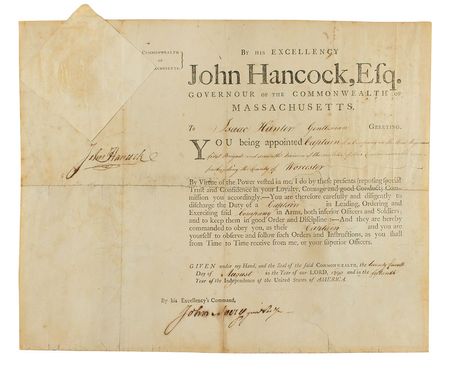 COMMONWEALTH
OF
MASSACHUSETTS.
BY HIS EXCELLENCY
John Hancock, Esq.
GOVERNOUR OF THE COMMONWEALTH OF
MASSACHUSETTS.
To Isaac Hunter Gentleman GREETING.
YOU being appointed Captain
the County of Worcester
By Virtue of the Power vested in me, I do by these presents (reposing special
Trust and Confidence in your Loyalty, Courage and good Conduct) Com-
mission you accordingly.—You are therefore carefully and diligently to
discharge the Duty of a Captain in Leading, Ordering and
Exercising said Company in Arms, both inferior Officers and Soldiers;
and to keep them in good Order and Discipline:—And they are hereby
commanded to obey you, as their Captain and you are
yourself to observe and follow such Orders and Instructions, as you shall
from Time to Time receive from me, or your superior Officers.
John Hancock
GIVEN under my Hand, and the Seal of the said COMMONWEALTH, the
Day of August in the Year of our LORD, 1790 and in the fifteenth
Year of the Independence of the United States of AMERICA.
By his Excellency's Command,
John Avery